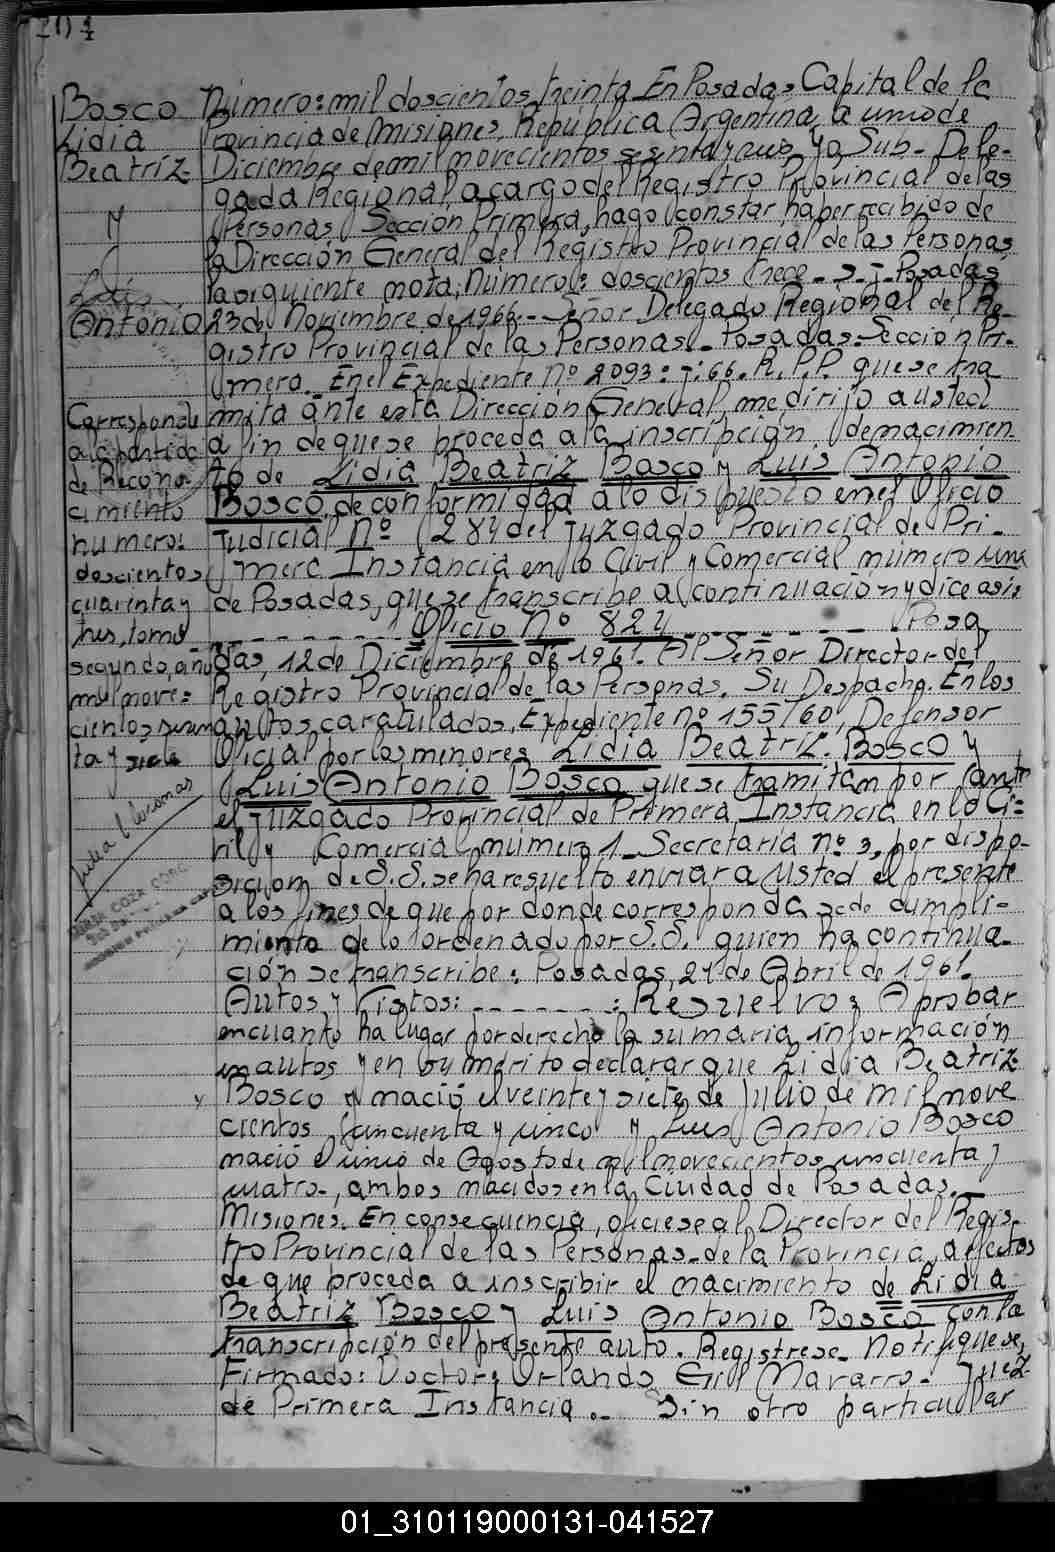 104
Bosco
Lidia
Beatriz
y
Luis
Antonio
Número: mil doscientos treinta En Posadas Capital de la
Provincia de Misiones, República Argentina, a uno de
Diciembre de mil novecientos sesenta y seis yo Sub-Dele-
gada Regional, a cargo del Registro Provincial de las
Personas Sección Primera, hago constar haber recibido de
la Dirección General del Registro Provincial de las Personas
la siguiente nota; Número: doscientos trece - Posadas,
23 de Noviembre de 1966.- Señor Delegado Regional del Re-
gistro Provincial de las Personas.- Posadas- Sección Pri-
mera. En el Expediente Nº 2093: 66. R.P.P. que se tra
mita ante esta Dirección General, me dirijo a usted
a fin de que se proceda a la inscripción de nacimien-
to de Lidia Beatriz Bosco y Luis Antonio
Bosco, de conformidad a lo dispuesto en el Oficio
Judicial Nº 824 del Juzgado Provincial de Pri-
mera Instancia en lo Civil y Comercial número uno
de Posadas, que se transcribe a continuación y dice así:
Oficio Nº 824 Posa
das, 12 de Diciembre de 1961. Al Señor Director del
Registro Provincial de las Personas. Su Despacho. En los
autos caratulados, Expediente nº 155/60, Defensor
Oficial por los menores Lidia Beatriz Bosco y
Luis Antonio Bosco que se tramitan por ante
el Juzgado Provincial de Primera Instancia en lo Ci-
vil y Comercial número 1 Secretaría nº 3, por dispo-
sición de S.S. se ha resuelto enviar a Usted el presente
a los fines de que por donde corresponda se de cumpli-
miento de lo ordenado por S.S. quien ha continua-
ción se transcribe: Posadas, 21 de Abril de 1961.
Autos y Vistos: - - - - - - -: Resuelvo: Aprobar
encuanto ha lugar por derecho la sumaria información
en autos y en su mérito declarar que Lidia Beatriz
Bosco y nació el veinte y siete de Julio de mil nove
cientos cincuenta y cinco y Luis Antonio Bosco
nació el uno de Agosto de mil novecientos cincuenta y
cuatro-, ambos nacidos en la Ciudad de Posadas.-
Misiones. En consecuencia, ofíciese al Director del Regis-
tro Provincial de las Personas de la Provincia, a efectos
de que proceda a inscribir el nacimiento de Lidia
Beatriz Bosco y Luis Antonio Bosco con la
transcripción del presente auto. Registrese- Notifiquese,
Firmado: Doctor: Orlando Gill Navarro- Juez
de Primera Instancia.- Sin otro particular
Corresponde
a la partida
de Recono-
cimiento
numero:
doscientos
cuarenta y
tres, tomo
segundo, año
mil nove-
cientos sesen
ta y siete
01_310119000131-041527